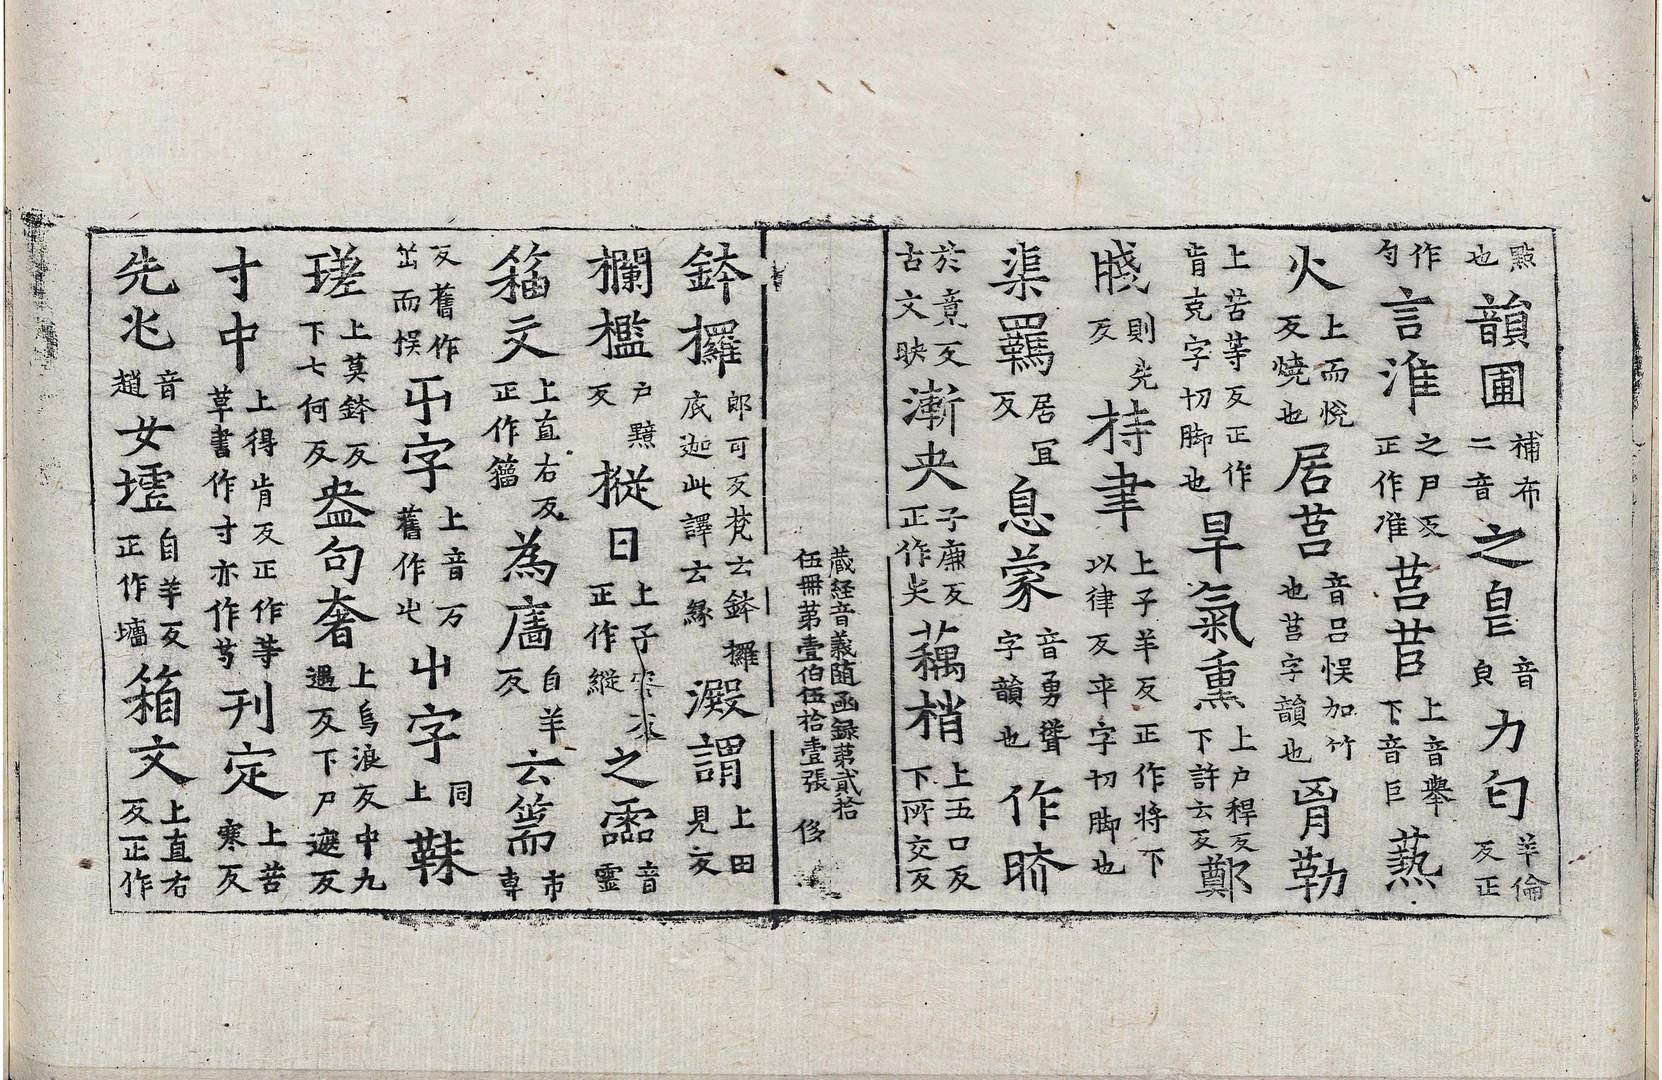 點也韻圃補布二音之皀音皃力匀羊倫反正
作勻言淮之尸反正作准莒苣上音舉下音巨爇
火上而悅反燒也居莒音呂悞加竹也莒字韻也𦙄勒
上苦等反正作肯克字切脚也旱氣熏上户稈反下許云反鄭
牋則先反持聿上子羊反正作將下以律反㚔字切脚也
渠羈居冝反息蒙音勇聳字韻也作眹
於竟反古文映漸央子廉反正作尖藕梢上五口反下所交反
藏経音義随函録第貳拾伍冊第壹伯伍拾壹張 侈
鉢攞郎可反梵云鉢攞底迦此譯云緣澱謂上田見反
欄檻户黤反樅日上子容反正作縱之霝音靈
籕文上直右反正作籀為廧自羊反云篅市専
反舊作笽而悞丏字上音万舊作屯屮字同上靺
瑳上莫鉢反下七何反盎句奢上烏浪反中九遇反下尸遮反
寸中上得肯反正作等草書作寸亦作䓁刊定上苦寒反
先兆音趙女墟自羊反正作墻䈞文上直右反正作